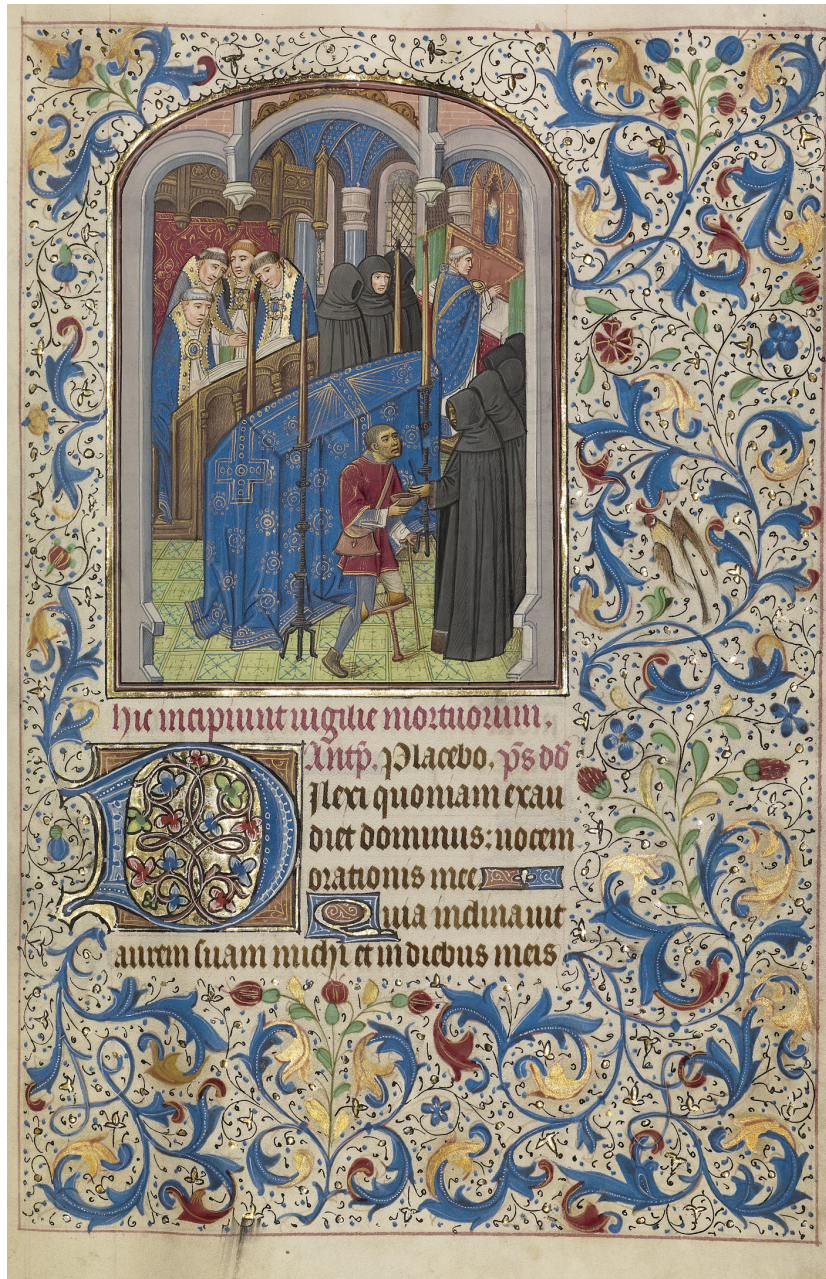 hic incipiunt vigilie mortuorum.
Antp̄. Placebo. p̄s dd̄
Dilexi quoniam exau
diet dominus: uocem
orationis mee
Quia inclinauit
aurem suam michi et in diebus meis